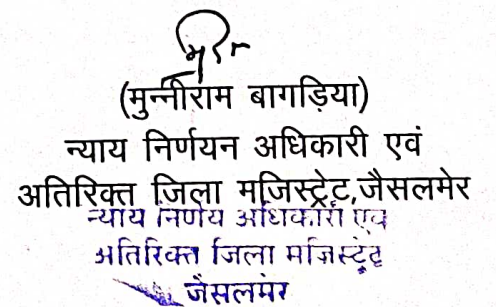 (मुन्नीराम बागड़िया)
न्याय निर्णयन अधिकारी एवं
अतिरिक्त जिला मजिस्ट्रेट,जैसलमेर
न्याय निर्णय अधिकारी एवं
अतिरिक्त जिला मजिस्ट्रेट
जैसलमेर